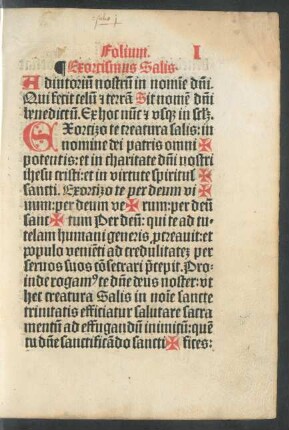 Folium. I
¶ Exorcismus Salis.
Adiutoriũ nostrũ in nomĩe dñi.
Qui fecit celũ ⁊ terrã Sit nomẽ dñi
bñedictũ. Ex hoc nũc ⁊ vsqꝫ in sclꝫ.
EXorcizo te creatura salis: in
nomine dei patris omni ✠
potentis: et in charitate dñi nostri
ihesu cristi: et in virtute spiritus ✠
sancti. Exorcizo te per deum vi ✠
uum: per deum ve ✠ rum: per deũ
sanc ✠ tum Per deũ: qui te ad tu-
telam humani generis ꝓcreauit: et
populo veniẽti ad credulitateꝫ per
seruos suos cõsecrari p̃cepit. Pro-
inde rogamꝰ te dñe deus noster: vt
hec creatura Salis in noĩe sancte
trinitatis efficiatur salutare sacra
mentũ ad effugandũ inimicũ: quẽ
tu dñe sanctificãdo sancti ✠ fices: